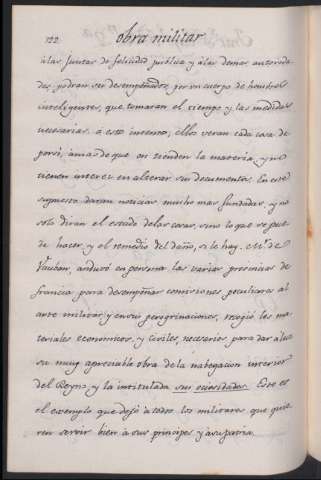 122 obra militar
à las juntas de felicidad publica y à las demas autorida
des, podran ser desempeñados, por un cuerpo de hombres
inteligentes, que tomaran el tiempo y las medidas
necesarias à este intento; ellos veran cada cosa de
porsi, à mas de que en tienden la materia, y no
tienen interes en alterar sus documentos. En este
supuesto daran noticias mucho mas fundadas, y no
solo diran el estado delas cosas, sino lo que se pue
de hacer, y el remedio del daño, si le hay. Mr. de
Vauban, anduvo en persona las varias provincias de
francia para desempeñar comisiones peculiares al
arte militar y en sus peregrinaciones, recojió los ma
teriales economicos, y civiles, necesarios para dar à luz
su muy apreciable obra de la nabegacion interior
del Reyno, y la intitulada sus ociosidades. Este es
el exemplo que dejó à todos los militares que quie
ren servir bien à sus principes y à su patria.